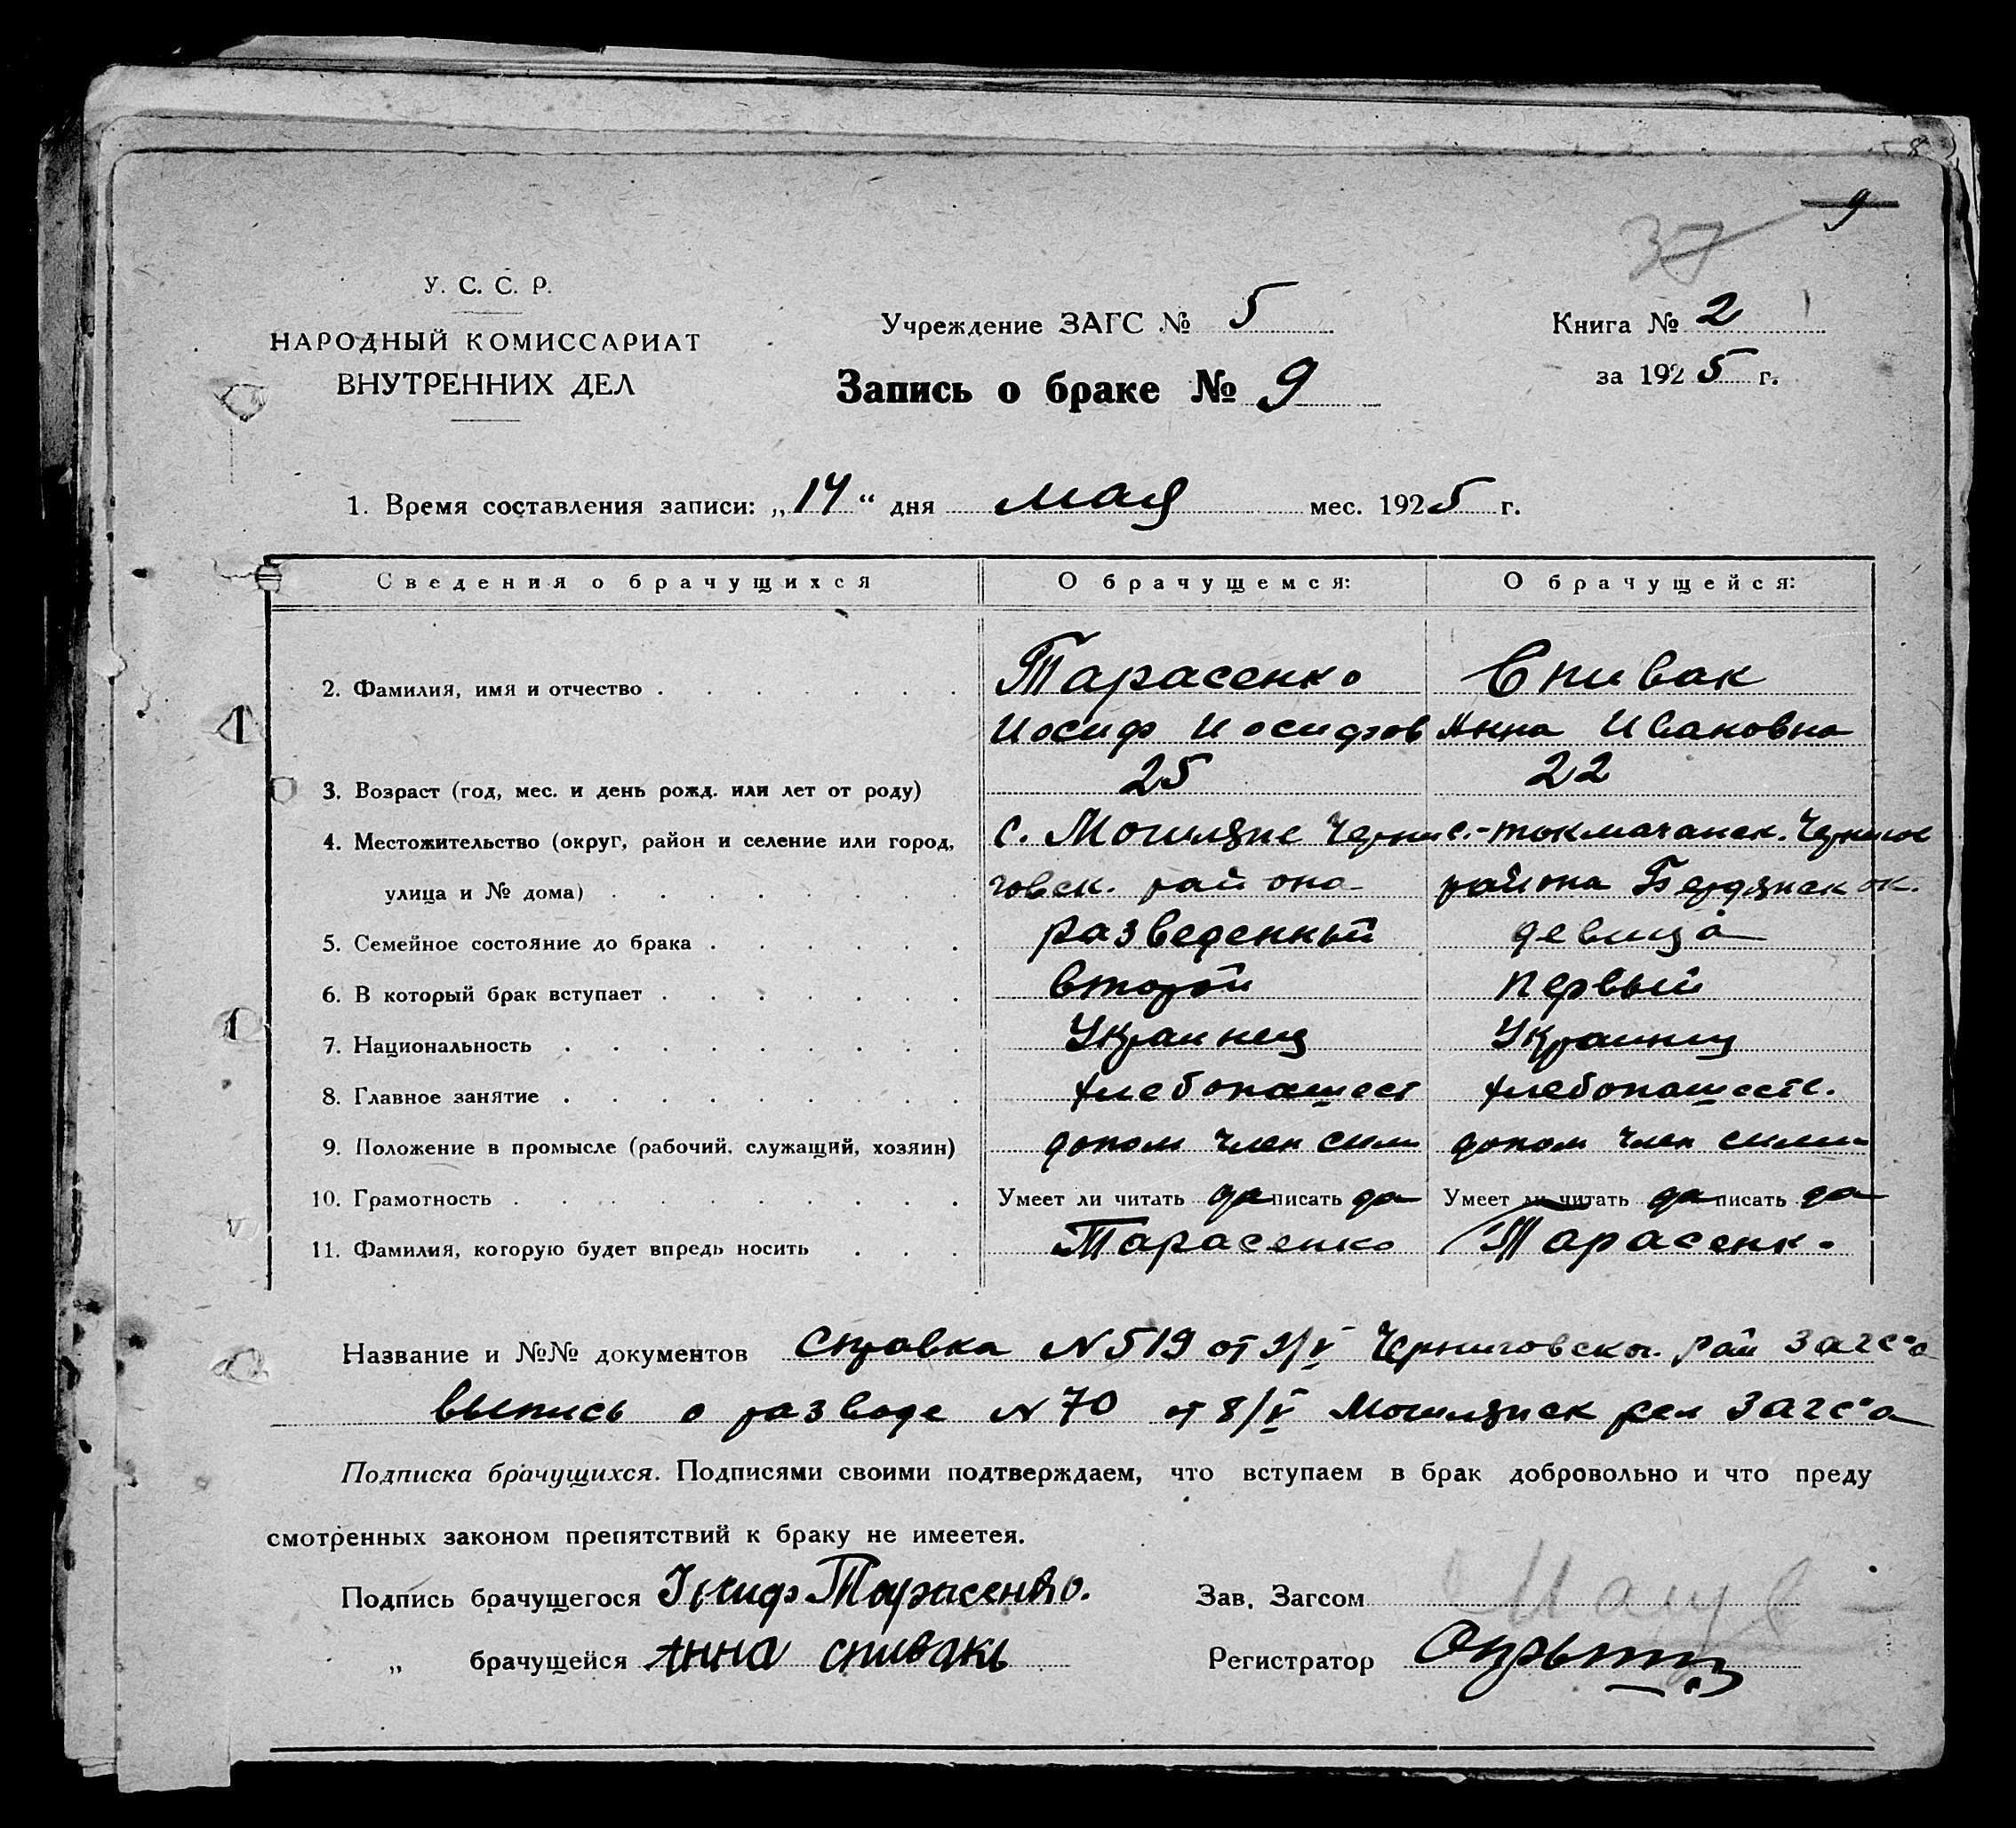 8
9
37
У. С. С. Р.
НАРОДНЫЙ КОМИССАРИАТ
ВНУТРЕННИХ ДЕЛ
Учреждение ЗАГС № 5
Запись о браке № 9
Книга № 2
за 1925 г.
1. Время составления записи: „14“ дня мая мес. 1925 г.
Сведения о брачущихся О брачущемся: О брачущейся:
2. Фамилия, имя и отчество Тарасенко Спивак
Иосиф Иосифов Анна Ивановна
3. Возраст (год, мес. и день рожд. или лет от роду) 25 22
4. Местожительство (округ, район и селение или город, с. Могиляне Черни с.-токмачанск. Чернигов
улица и № дома) говск. района района Бердянск ок.
5. Семейное состояние до брака разведенный девица
6. В который брак вступает второй первый
7. Национальность Украинец Украинц
8. Главное занятие хлебопашест хлебопашеств.
9. Положение в промысле (рабочий, служащий, хозяин) допом член семи допом член семи
10. Грамотность Умеет ли читать да писать да Умеет ли читать да писать да
11. Фамилия, которую будет впредь носить Тарасенко Тарасенк.
Название и №№ документов Справка N 519 от 9/V Черниговског. рай загс'а
выпись о разводе N 70 от 8/V Могилянск загс'а
Подписка брачущихся. Подписями своими подтверждаем, что вступаем в брак добровольно и что преду
смотренных законом препятствий к браку не имеетея.
Подпись брачущегося Иосиф Тарасенко. Зав. Загсом
„ брачущейся Анна спивакь Регистратор